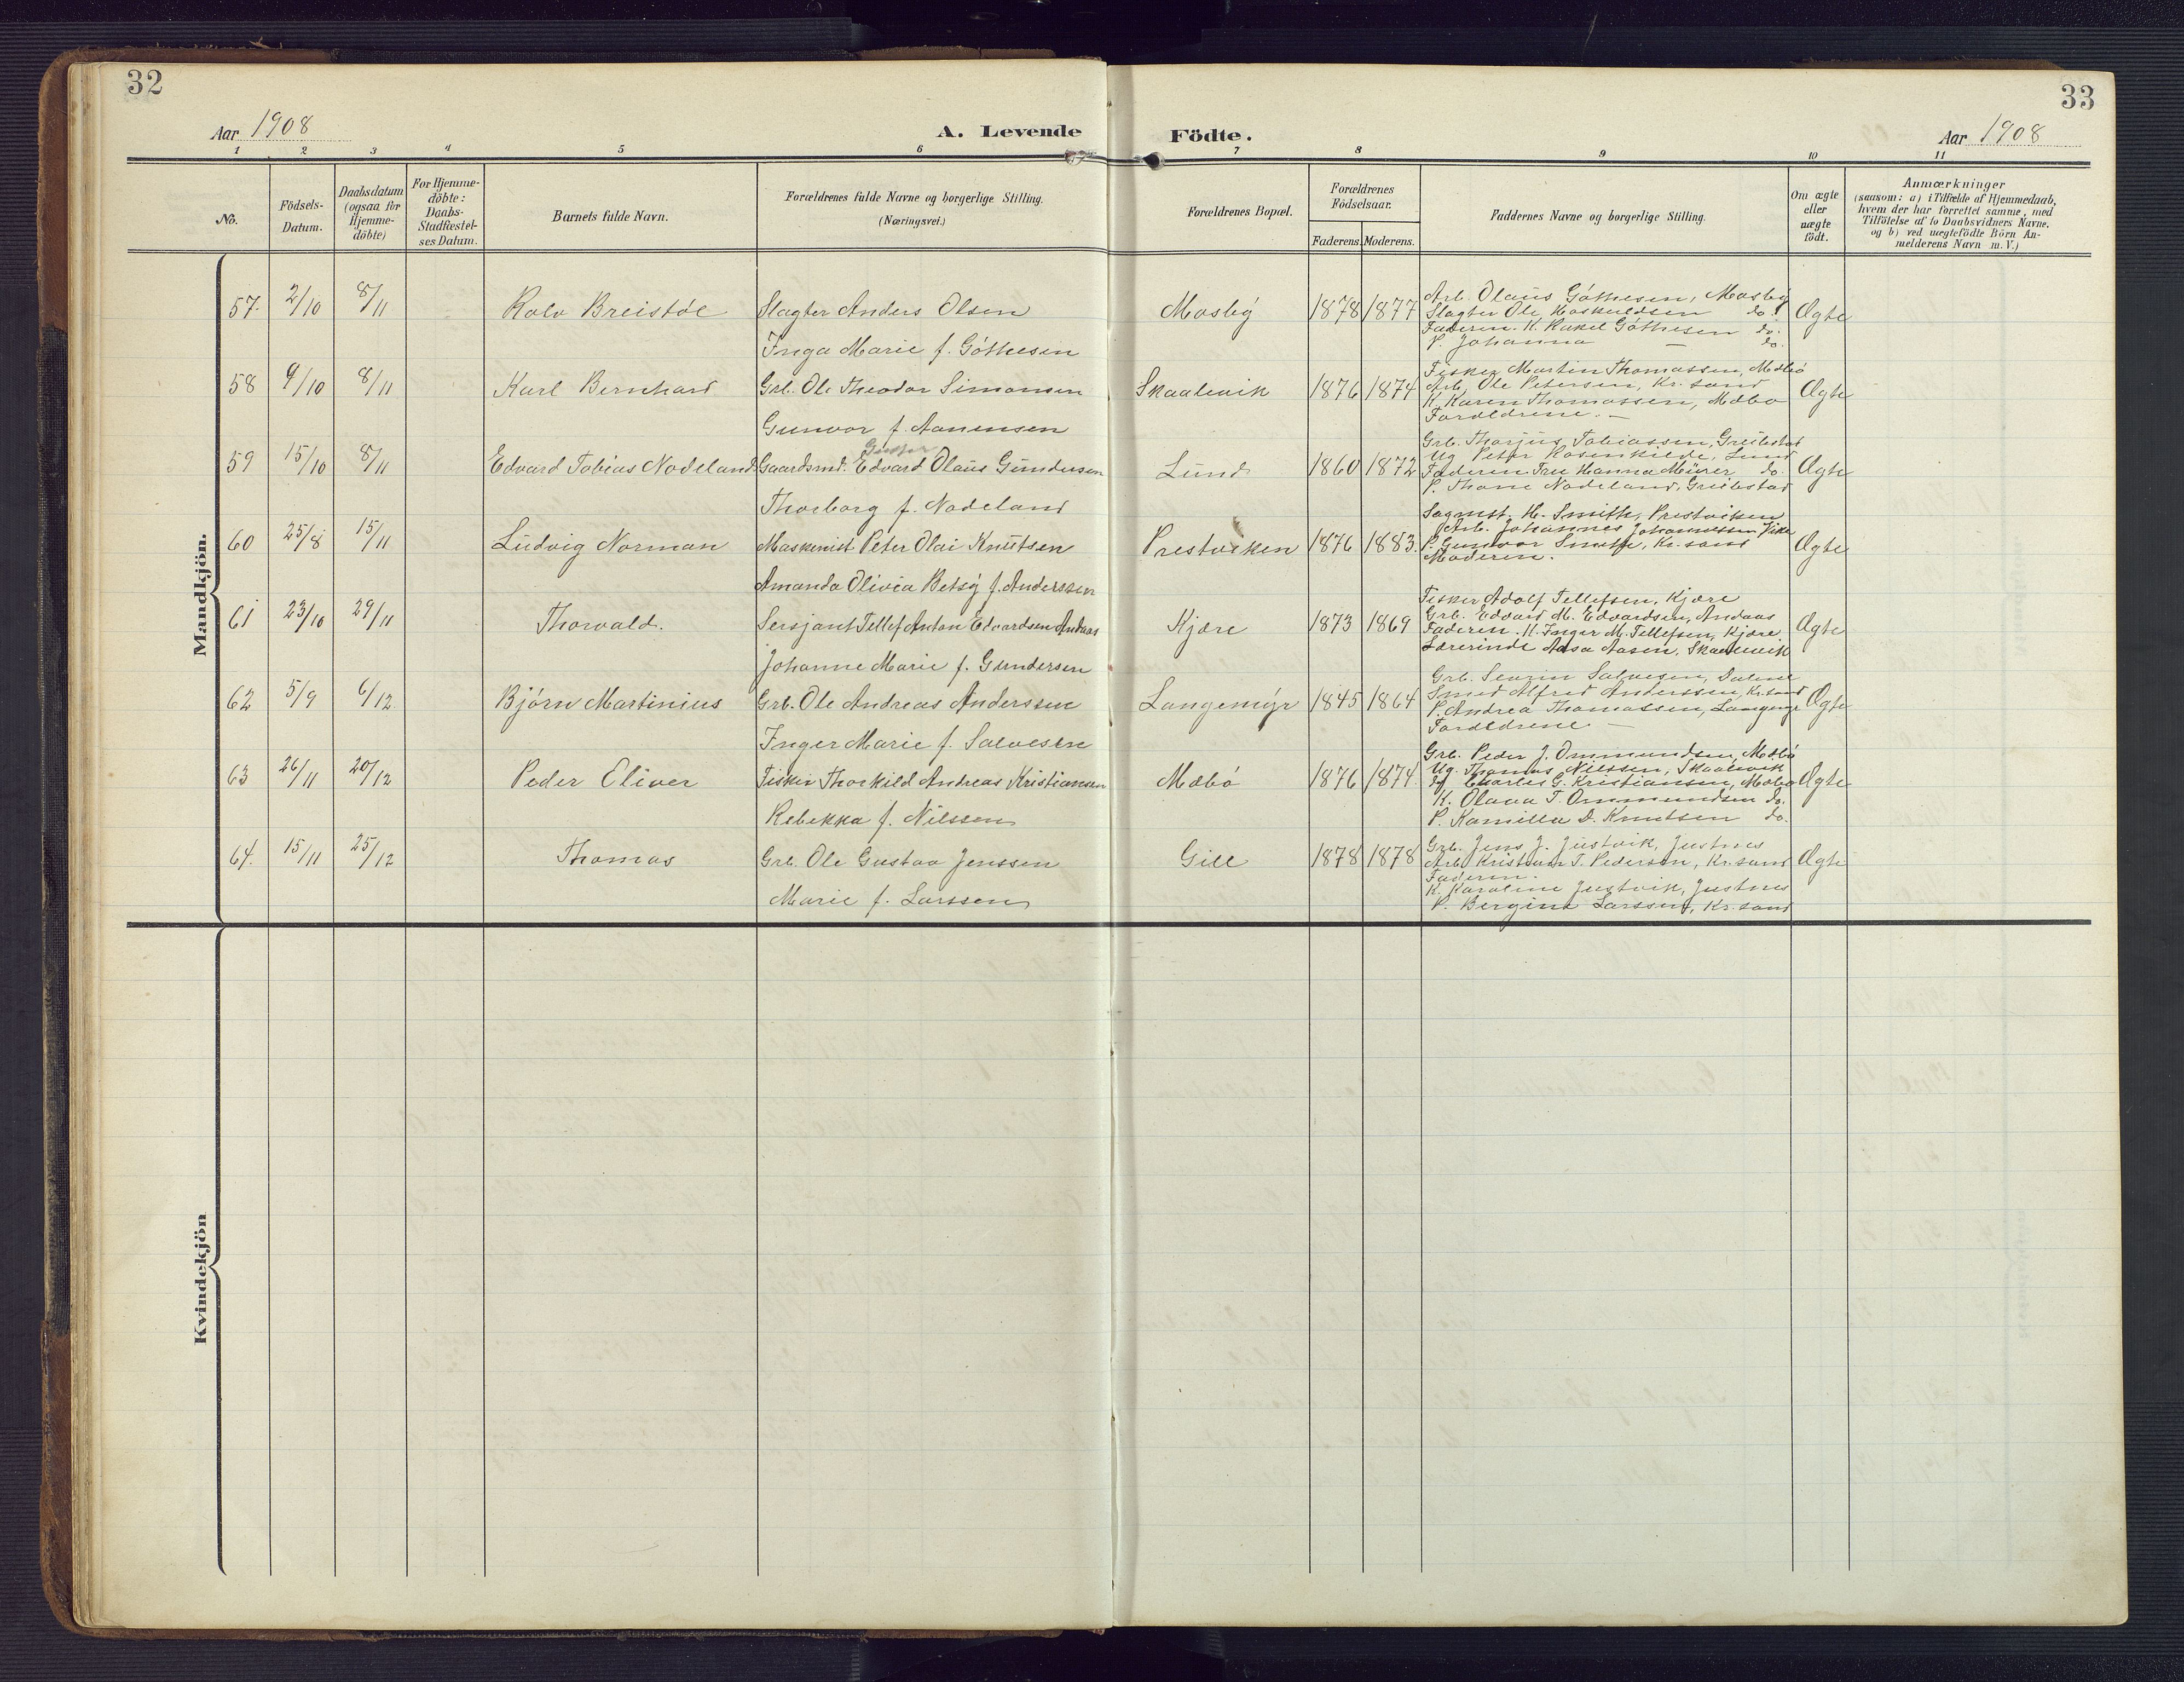 32
33
Aar 1908
A. Levende
Födte.
Aar 1908
1 2 3 4 5 6 7 8 9 10 11
No.
Födsels-Datum.
Daabsdatum (ogsaa for Hjemme-döbte)
For Hjemme-döbte: Daabs-Stadfæstel-ses Datum.
Barnets fulde Navn.
Forældrenes fulde Navne og borgerlige Stilling.
(Næringsvei.)
Forældrenes Bopæl.
Forældrenes Födselsaar.
Faderens. Moderens.
Faddernes Navne og borgerlige Stilling.
Om ægte eller uægte födt.
Anmærkninger
(saasom: a) i Tilfælde af Hjemmedaab,
hvem der har forrettet samme, med
Tilföielse af to Daabsvidners Navne,
og b) ved uægtefödte Börn An-
melderens Navn m. V.)
Mandkjön.
57. 2/10 8/11 Rolv Breistöl Slagter Anders Olsen Mosby 1878 1877 Ægte
Inga Marie f. Göthesen
Arb. Olaus Göthesen, Mosby
Slagter Ole Hoskuldsen do.
Faderen. K. Rakel Göthesen do.
P. Johanna — do.
58 9/10 8/11 Karl Bernhard Grb. Ole Theodor Simonsen Skaalevik 1876 1874 Ægte
Gunvor f. Aanensen
Fisker Martin Thomassen, Mæbö
Arb. Ole Petersen, Kr.sand
K. Karen Thomassen, Mæbø
Forældrene. —
59 15/10 8/11 Edvard Tobias Nodeland Gaardmd. Edvard Olaus Gundersen Lund 1860 1872 Ægte
Thorborg f. Nodeland
Grb. Thorjus Tobiassen, Greibstad
Ug. Peter Rosenkilde, Lund
Faderen. Fru Hanna Mürer do.
P. Thone Nodeland, Greibstad
60 25/8 15/11 Ludvig Norman Maskinist Peter Olai Knutsen Prestviken 1876 1883. Ægte
Amanda Olivia Betsy f. Anderssen
Sagmst. H. Smith, Prestviken
Arb. Johannes Johannessen
P. Gunvor Smith, Kr.sand
Moderen.
61 23/10 29/11 Thorvald. Sersjant Tellef Anton Edvardsen Andaas Kjære 1873 1869 Ægte
Johanne Marie f. Gundersen
Fisker Adolf Tellefsen, Kjære
Grb. Edvard M. Edvardsen, Andaas
Faderen. K. Inger M. Tellefsen, Kjære
Lærerinde Aasa Aasen, Skaalevik
62 5/9 6/12 Björn Martinius Grb. Ole Andreas Anderssen Langemyr 1845 1864 Ægte
Inger Marie f. Salvesen
Grb. Severin Salvesen, Dalene
Smed Alfred Anderssen, Kr.sand
P. Andrea Thomassen, Langemyr
Forældrene —
63 26/11 20/12 Peder Eliver Fisker Thorkild Andreas Kristiansen Mæbö 1876 1874. Ægte
Rebekka f. Nilssen
Grb. Peder J. Ommundsen, Mæbö
Ug. Thomas Nilssen, Skaalevik
Charles G. Kristiansen, Mæbø
K. Olava T. Ommundsen do.
P. Kamilla D. Knutsen do.
64. 15/11 25/12 Thomas Grb. Ole Gustav Jenssen Gill 1878 1878 Ægte
Marie f. Larssen
Grb. Jens J. Justvik, Justnes
Arb. Kristian T. Pedersen, Kr.sand
Faderen.
K. Karoline Justvik, Justnes
P. Bergine Larssen, Kr.sand
Kvindekjön